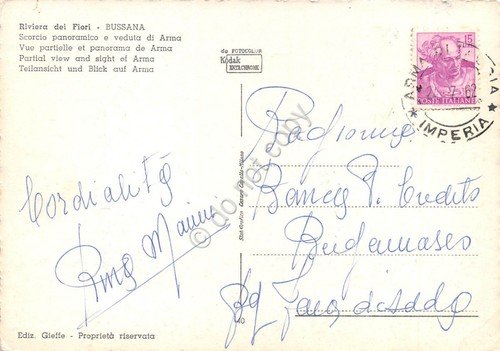 Riviera dei Fiori - BUSSANA
Scorcio panoramico e veduta di Arma
Vue partielle et panorama de Arma
Partial view and sight of Arma
Teilansicht und Blick auf Arma
da FOTOCOLOR
Kodak
EKTACHROME
15
POSTE ITALIANE
ARMA DI
62
* IMPERIA *
Cordialità
Ragioniere
Banca P. Credito
Bergamasco
S.
Ediz. Gieffe - Proprietà riservata
do not copy